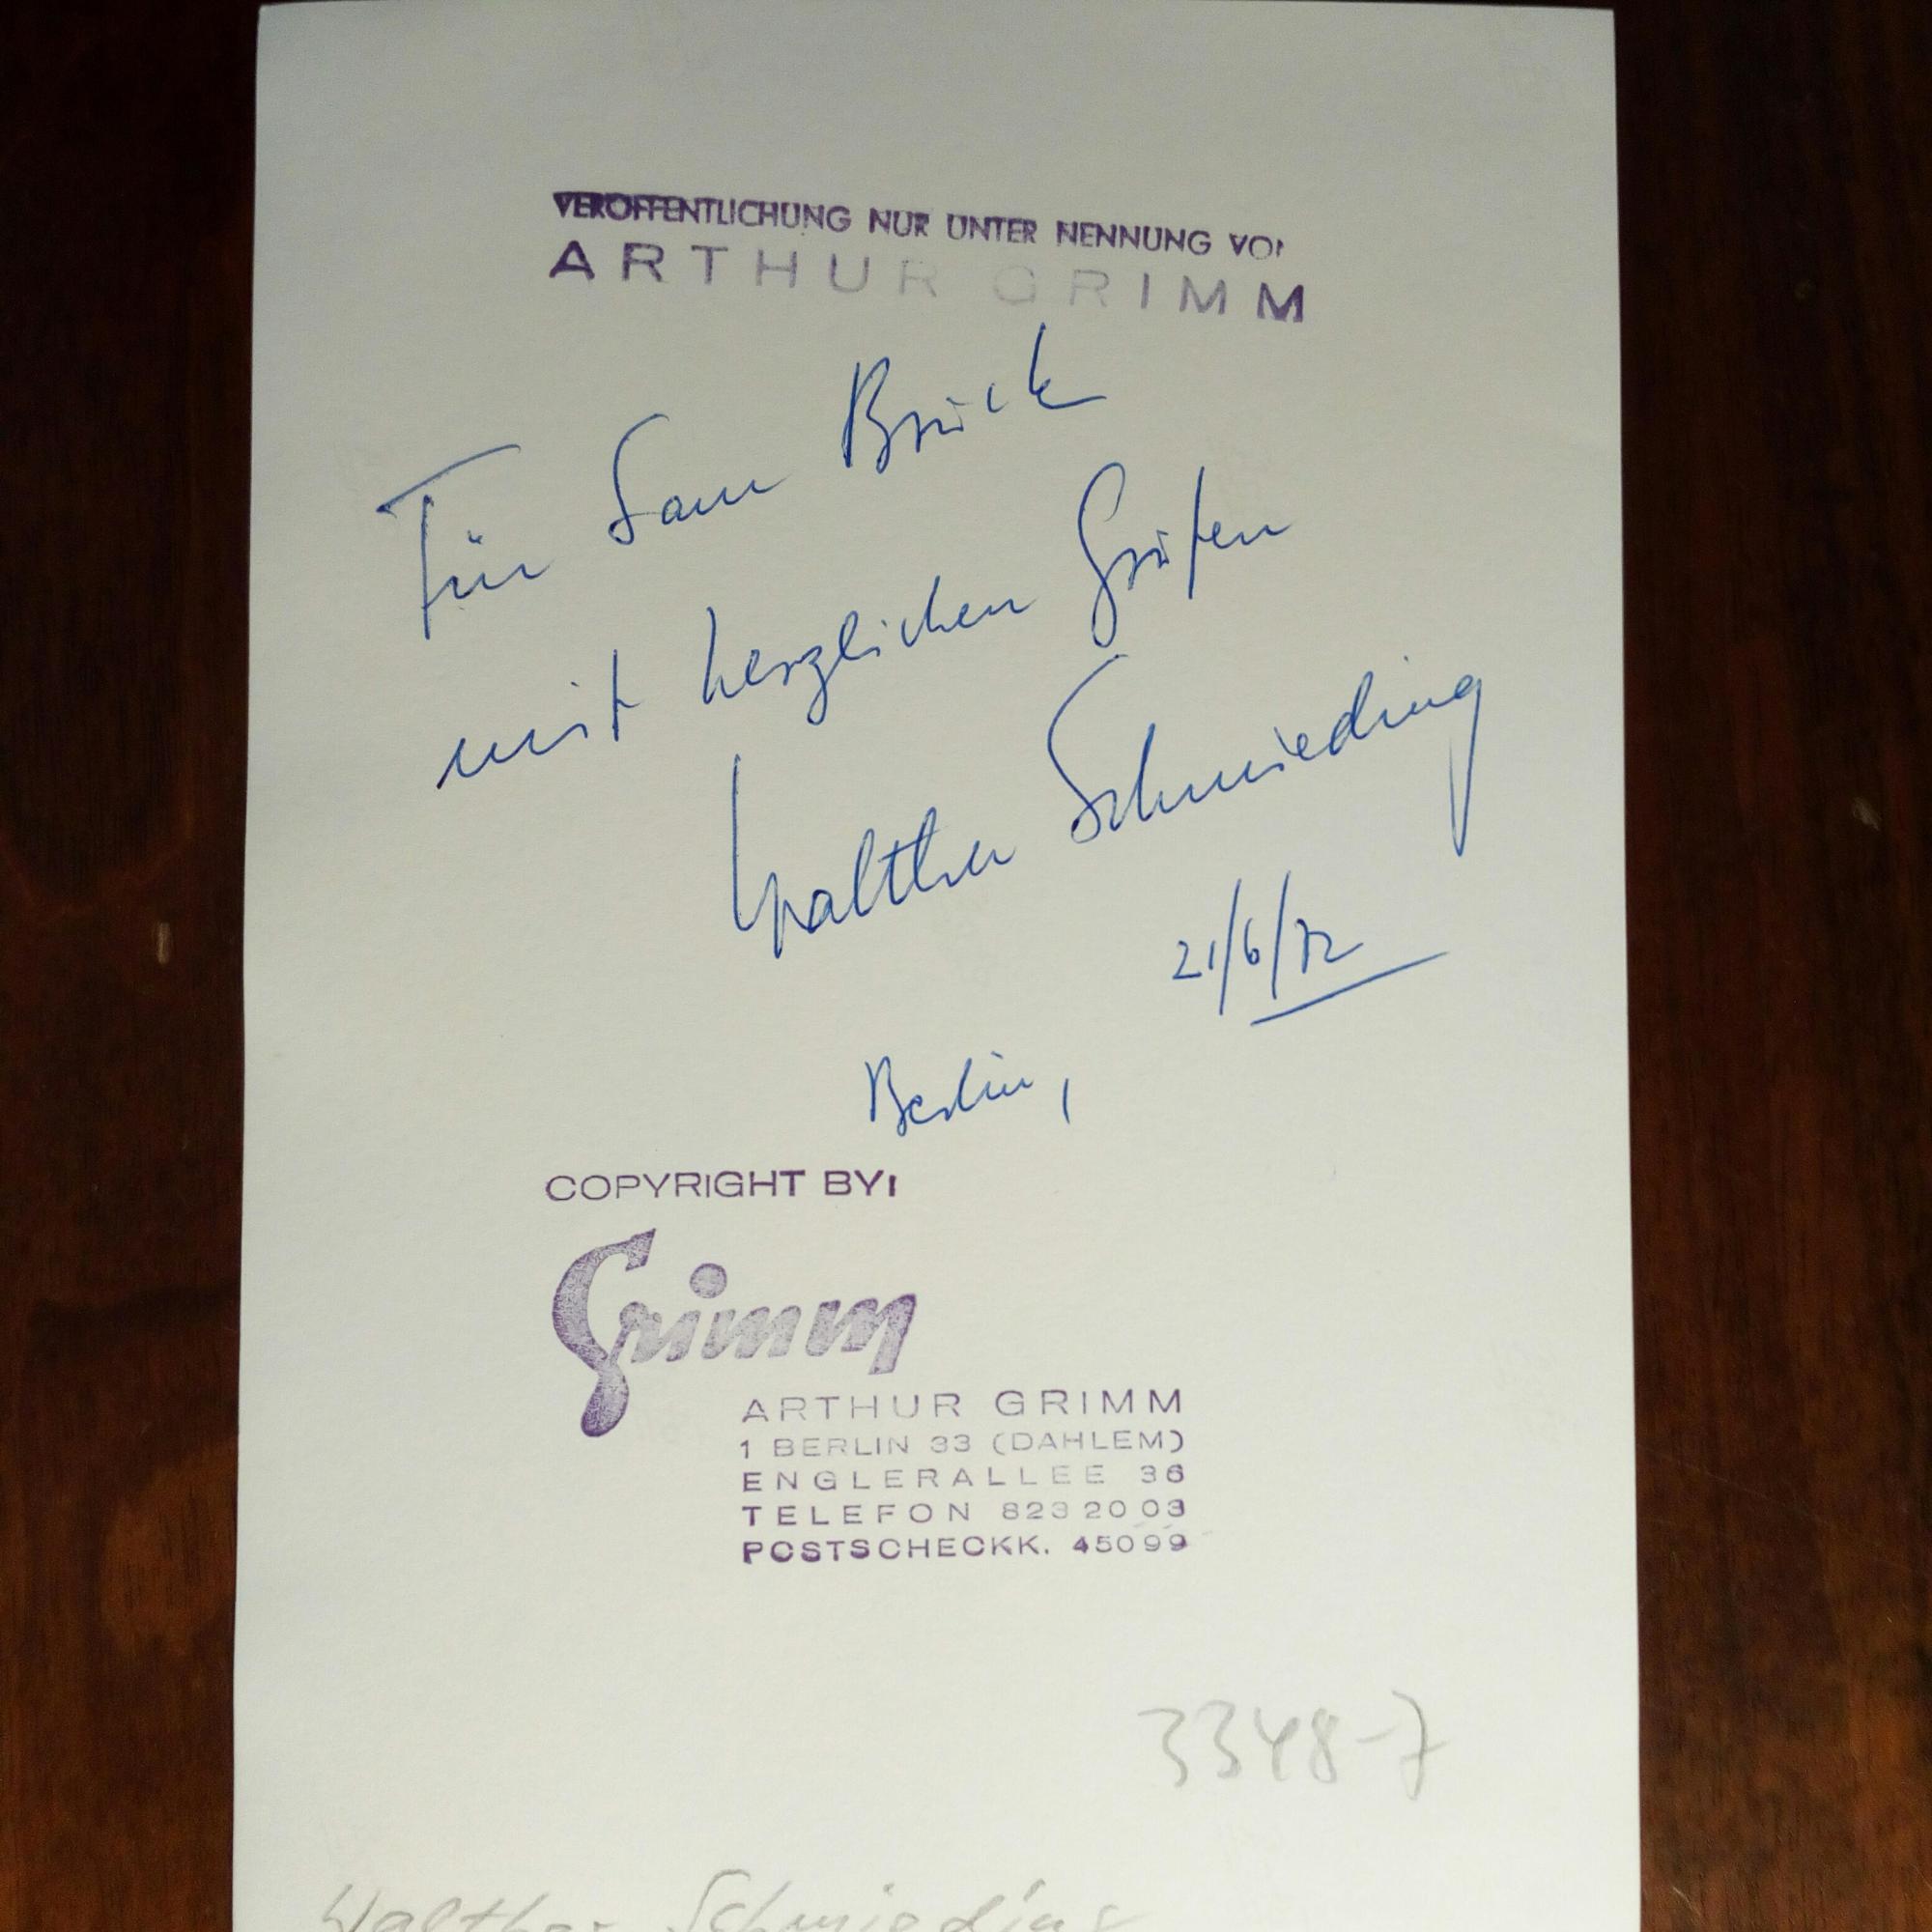 VERÖFFENTLICHUNG NUR UNTER NENNUNG VON
ARTHUR GRIMM
Für Sam Brück
mit herzlichen Grüßen
Walther Schmieding
21/6/72
Berlin,
COPYRIGHT BY:
Grimm
ARTHUR GRIMM
1 BERLIN 33 (DAHLEM)
ENGLERALLEE 36
TELEFON 823 20 03
POSTSCHECKK. 45099
3348-7
Walther Schmieding